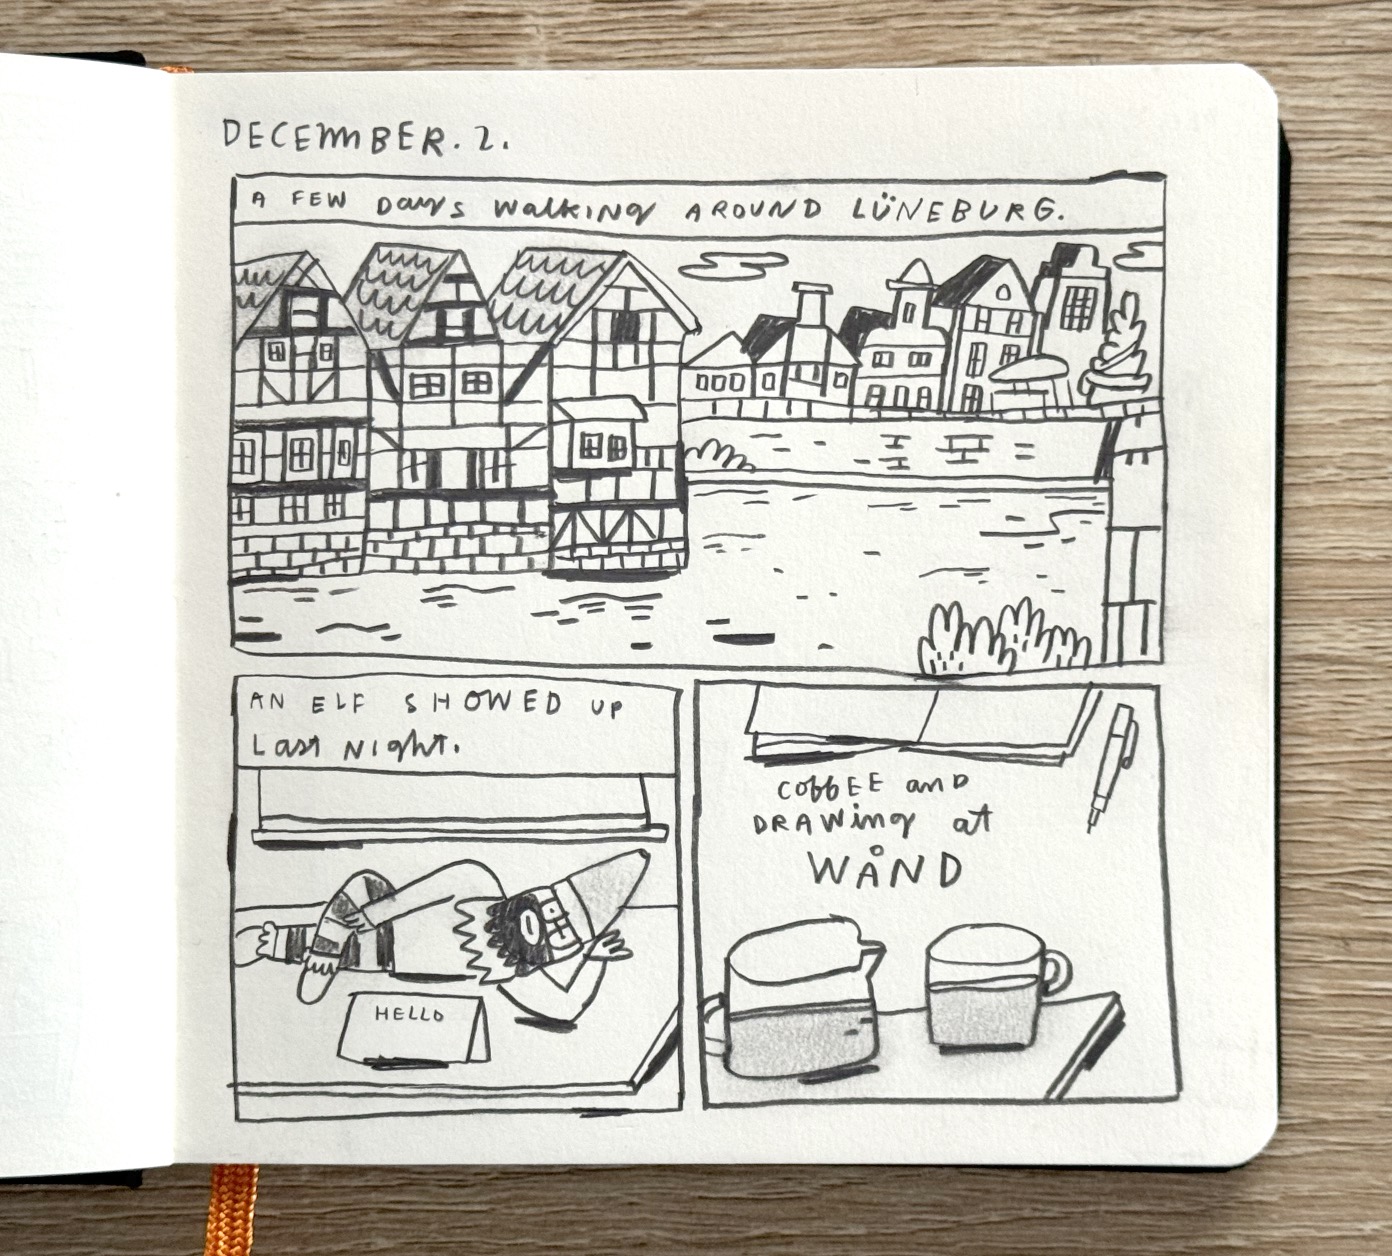 DECEMBER.2.
A FEW Days Walking AROUND LÜNEBURG.
AN ELF SHOWED UP
Last Night.
HELLO
COffEE and
DRAWing at
WÅND